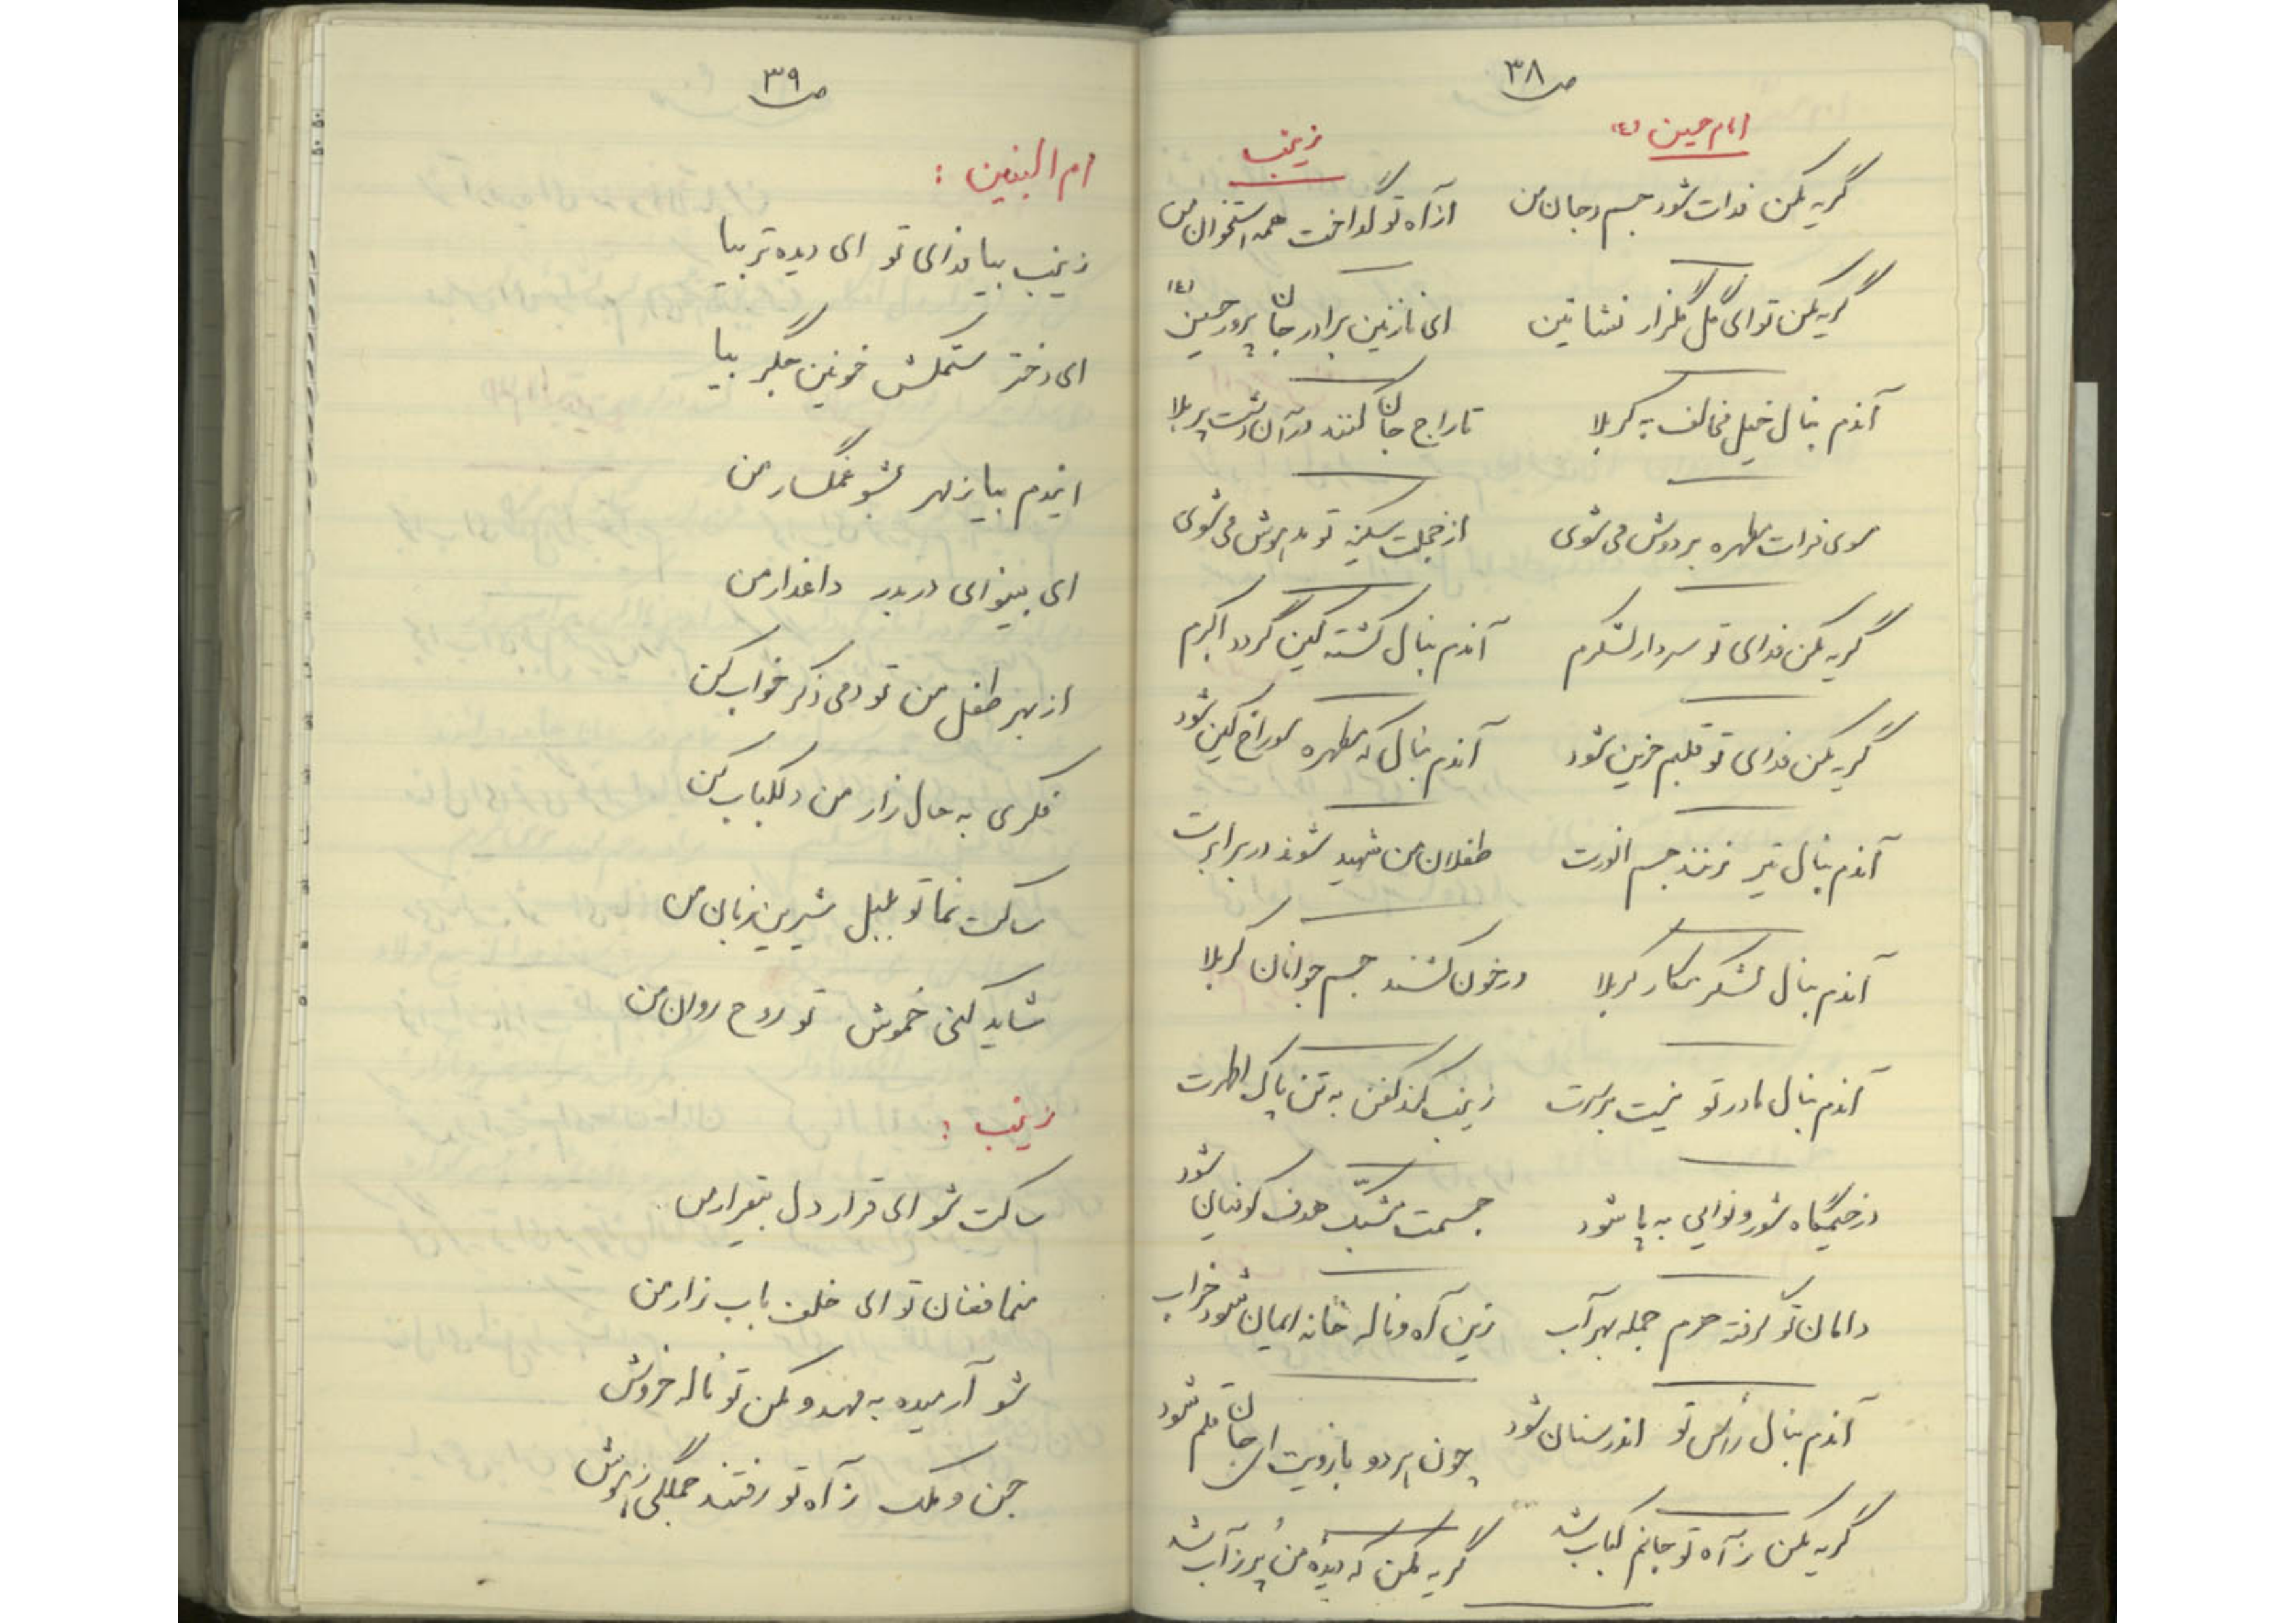 ص ۳۸
امام حسین (ع)
زینب
گریه مکن فدات شود جسم و جان من
از آه تو گداخت همه استخوان من
گریه مکن تو ای گل گلزار نشاتین
ای نازنین برادر جان پرور حسین (ع)
آندم بنال خیل مخالف به کربلا
تاراج جان کنند در آن دشت پر بلا
سوی فرات مطهره بر دوش می شوی
از خجلت سکینه تو مدهوش می شوی
گریه مکن فدای تو سردار لشکرم
آندم بنال کشته کین گردد اکبرم
گریه مکن فدای تو قلبم حزین شود
آندم بنال که مطهره سوراخ کین شود
آندم بنال تیر زنند جسم انورت
طفلان من شهید شوند در برابرت
آندم بنال لشکر مکار کربلا
در خون کشند جسم جوانان کربلا
آندم بنال مادر تو نیست بر سرت
زینب کند کفن به تن پاک اطهرت
در خیمگاه شور و نوایی به پا شود
جسمت مشبک هدف کوفیان شود
دامان تو گرفته حرم جمله بهر آب
زین آه و ناله خانه ایمان شود خراب
آندم بنال رأس تو اندر سنان شود
چون هر دو بازویت ای جان قلم شود
گریه مکن ز آه تو جانم کباب شد
گریه مکن که دیده من پر ز آب شد
ص ۳۹
ام البنین :
زینب بیا فدای تو ای دیده تر بیا
ای دختر ستمکش خونین جگر بیا
ایندم بیا ز مهر بشو غمگسار من
ای بینوای دربدر داغدار من
از بهر طفل من تو دمی ذکر خواب کن
فکری به حال زار من دلکباب کن
ساکت نما تو بلبل شیرین زبان من
شاید کنی خموش تو روح روان من
زینب :
ساکت شو ای قرار دل بیقرار من
منما فغان تو ای خلف باب زار من
شو آرمیده به مهد و مکن تو ناله خروش
جن و ملک ز آه تو رفتند جملگی ز هوش